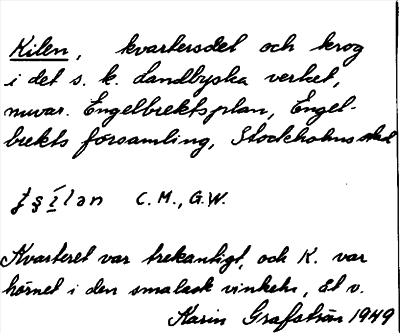 Kilen, kvartersdel och krog
i det s. k. Landbyska verket,
nuvar. Engelbrektsplan, Engel-
brekts församling, Stockholms stad
C.M., G.W.
Kvarteret var trekantigt, och K. var
hörnet i den smalaste vinkeln, St v.
Karin Grafström 1949